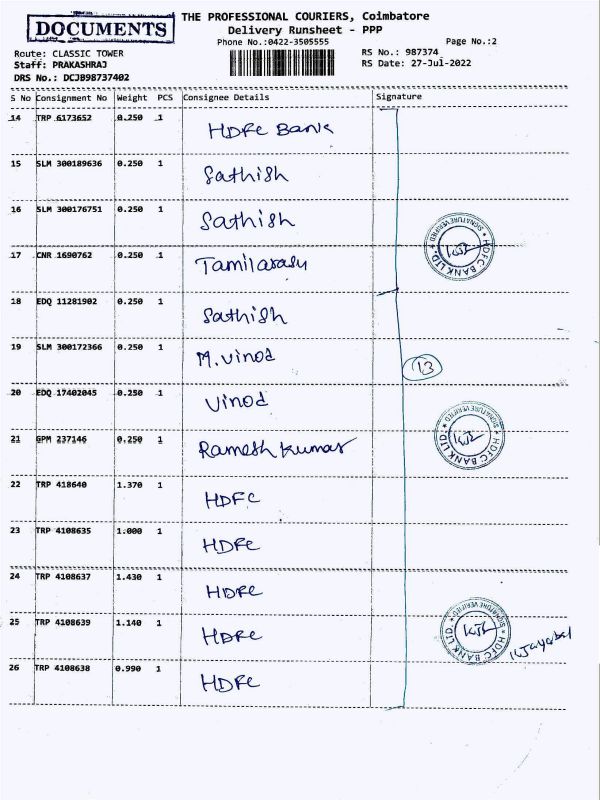 DOCUMENTS
THE PROFESSIONAL COURIERS, Coimbatore
Delivery Runsheet - PPP
Phone No.:0422-3505555 Page No.:2
Route: CLASSIC TOWER RS No.: 987374
Staff: PRAKASHRAJ RS Date: 27-Jul-2022
DRS No.: DCJB98737402
S No Consignment No Weight PCS Consignee Details Signature
14 TRP 6173652 0.250 1 HDFC Bank
15 SLM 300189636 0.250 1 Sathish
16 SLM 300176751 0.250 1 Sathish
HDFC BANK LTD. * SIGNATURE VERIFIED *
17 CNR 1690762 0.250 1 Tamilarasu
18 EDQ 11281902 0.250 1 Sathish
19 SLM 300172366 0.250 1 M. Vinod
13
20 EDQ 17402045 0.250 1 Vinod
21 GPM 237146 0.250 1 Ramesh Kumar
HDFC BANK LTD. * SIGNATURE VERIFIED *
22 TRP 418640 1.370 1 HDFC
23 TRP 4108635 1.000 1 HDFC
24 TRP 4108637 1.430 1 HDFC
25 TRP 4108639 1.140 1 HDFC
HDFC BANK LTD. * SIGNATURE VERIFIED *
26 TRP 4108638 0.990 1 HDFC